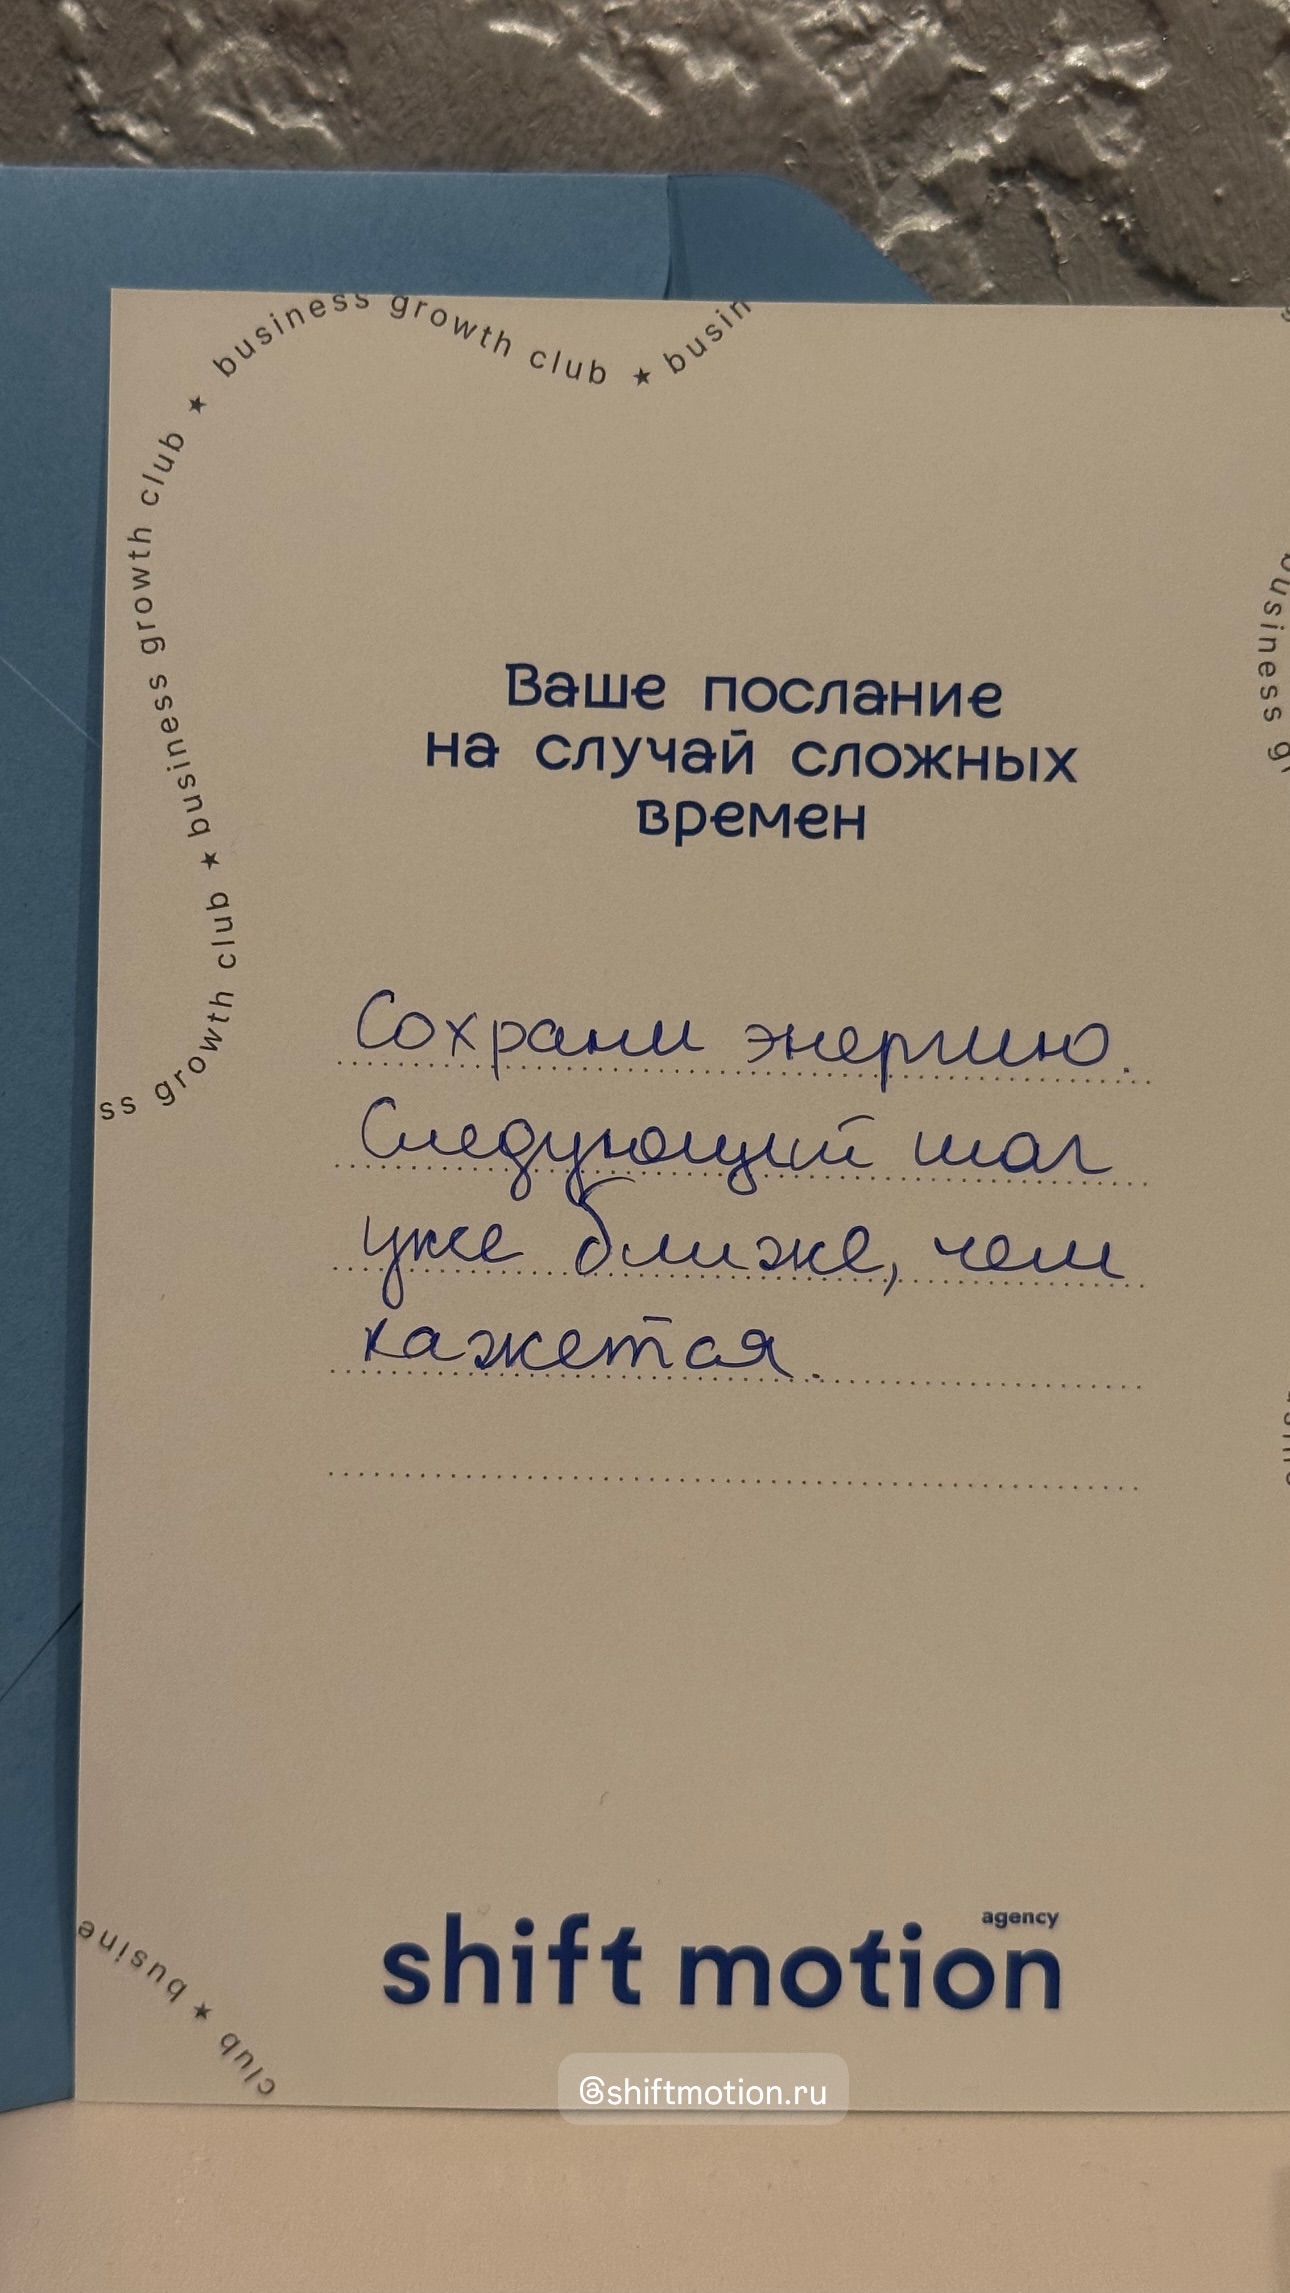 business growth club ★ busin
ss growth club ★ business growth club ★
Ваше послание
на случай сложных
времен
Сохрани энергию.
Следующий шаг
уже ближе, чем
кажется.
business g
club ★ busine
shift motion
agency
@shiftmotion.ru